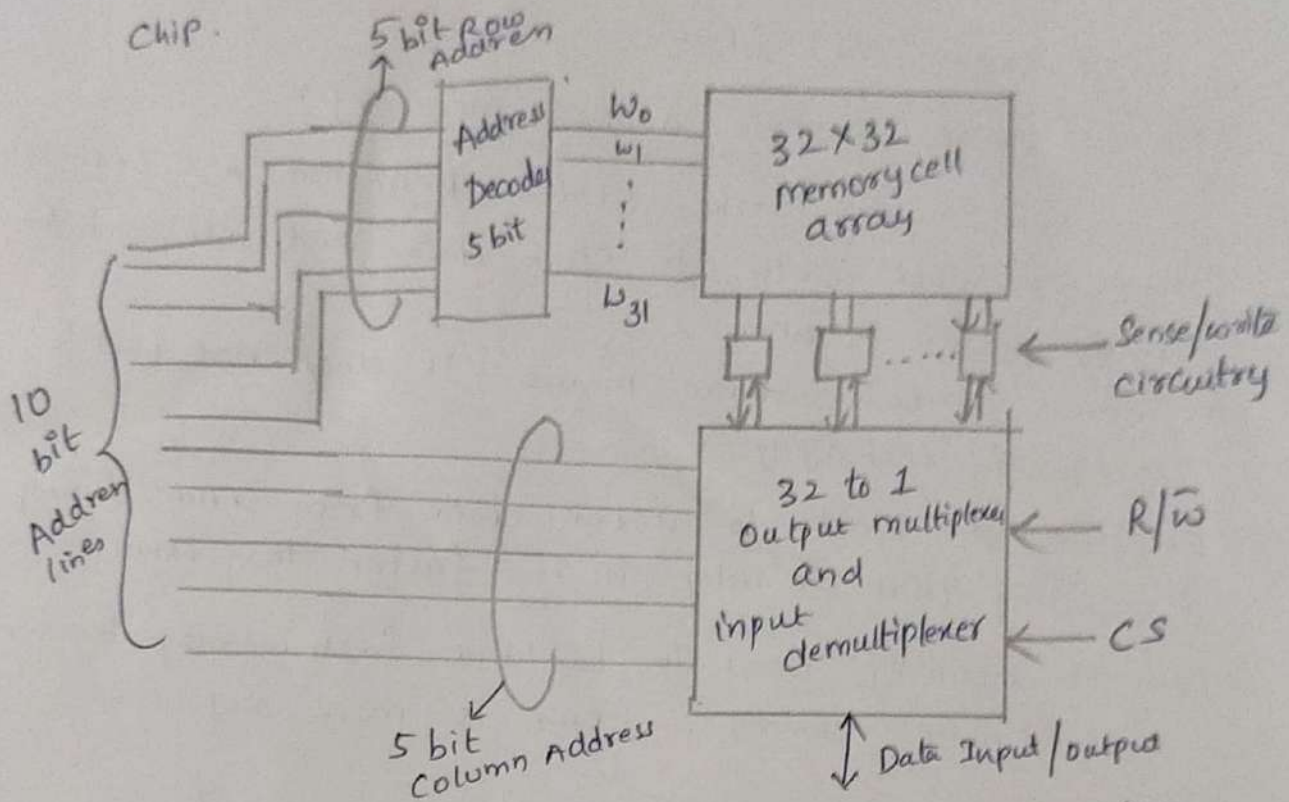 Chip.
5 bit Row
Addren
Address
Decoder
5 bit
W0
W1
W31
32 X 32
memory cell
array
Sense/write
circuitry
10
bit
Addren
lines
32 to 1
Output multiplexer
and
input
demultiplexer
R/w̅
CS
5 bit
Column Address
Data Input/output